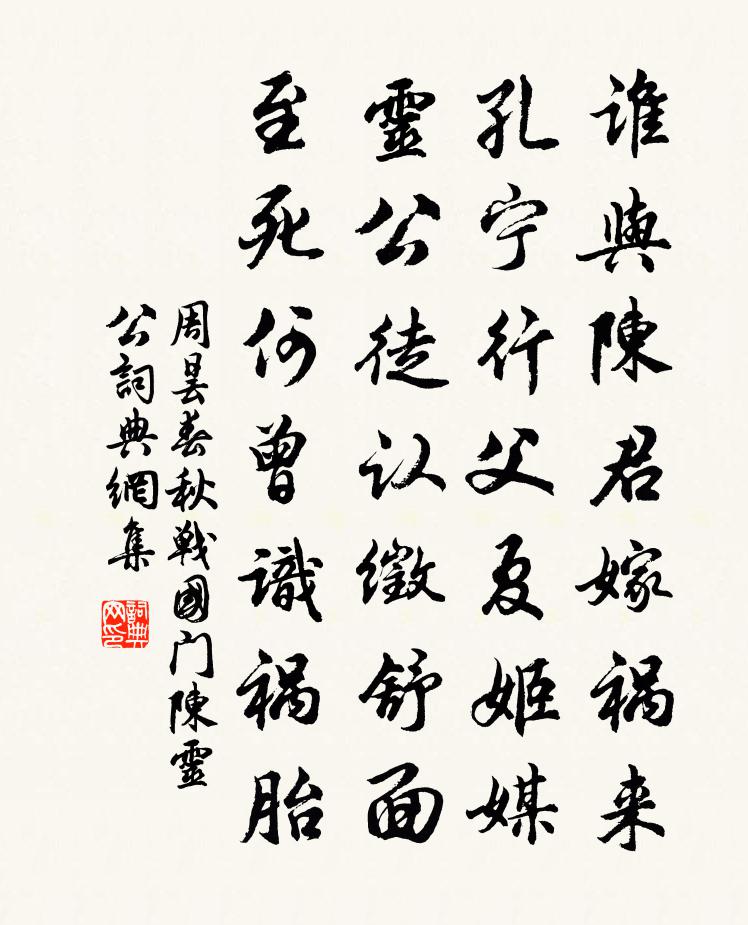 谁與陳君嫁祸来
孔宁行父夏姬媒
靈公徒认徵舒面
至死何曾識祸胎
周昙春秋戰國门陳靈
公詞典網集
詞典网印